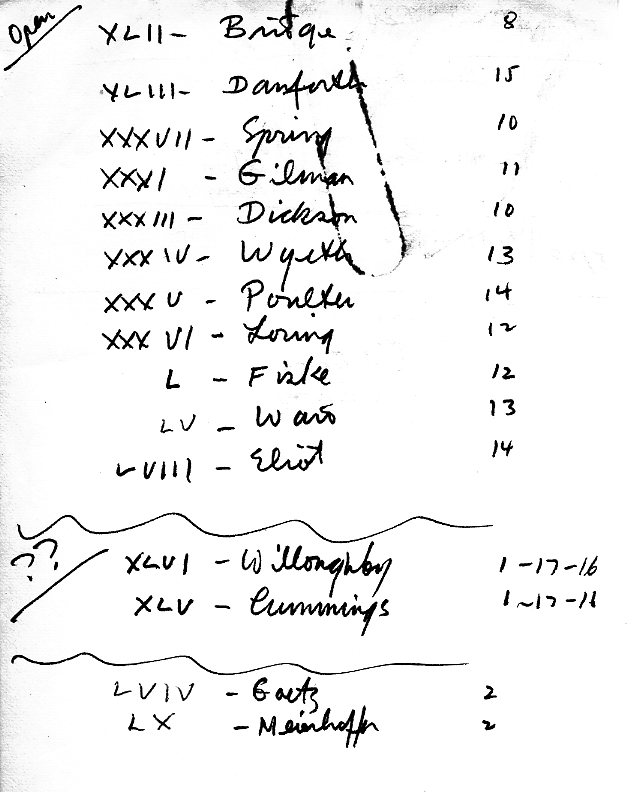 Open
XLII - Bridge 8
XLIII - Danforth 15
XXXVII - Spring 10
XXXI - Gilman 11
XXXIII - Dickson 10
XXXIV - Wyeth 13
XXXV - Poulter 14
XXXVI - Loring 12
L - Fiske 12
LV - Ward 13
LVIII - Eliot 14
??
XLVI - Willoughby 1-17-16
XLV - Cummings 1-17-16
LVIV - Gaetz 2
LX - Meierhoffer 2